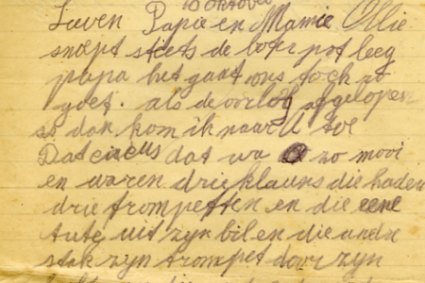 10 October
Lieven Papie en Mamie Ollie
snoept steets de boter pot leeg
papa het gaat ons toch zo
goet. als de oorlog afgelopen
is dan kom ik naar U toe
Dat circus dat wa zo mooi
en waren drie klauns die haden
drie trompetten en die eene
tute uit zyn bil en die andre
stak zyn trompet door zyn